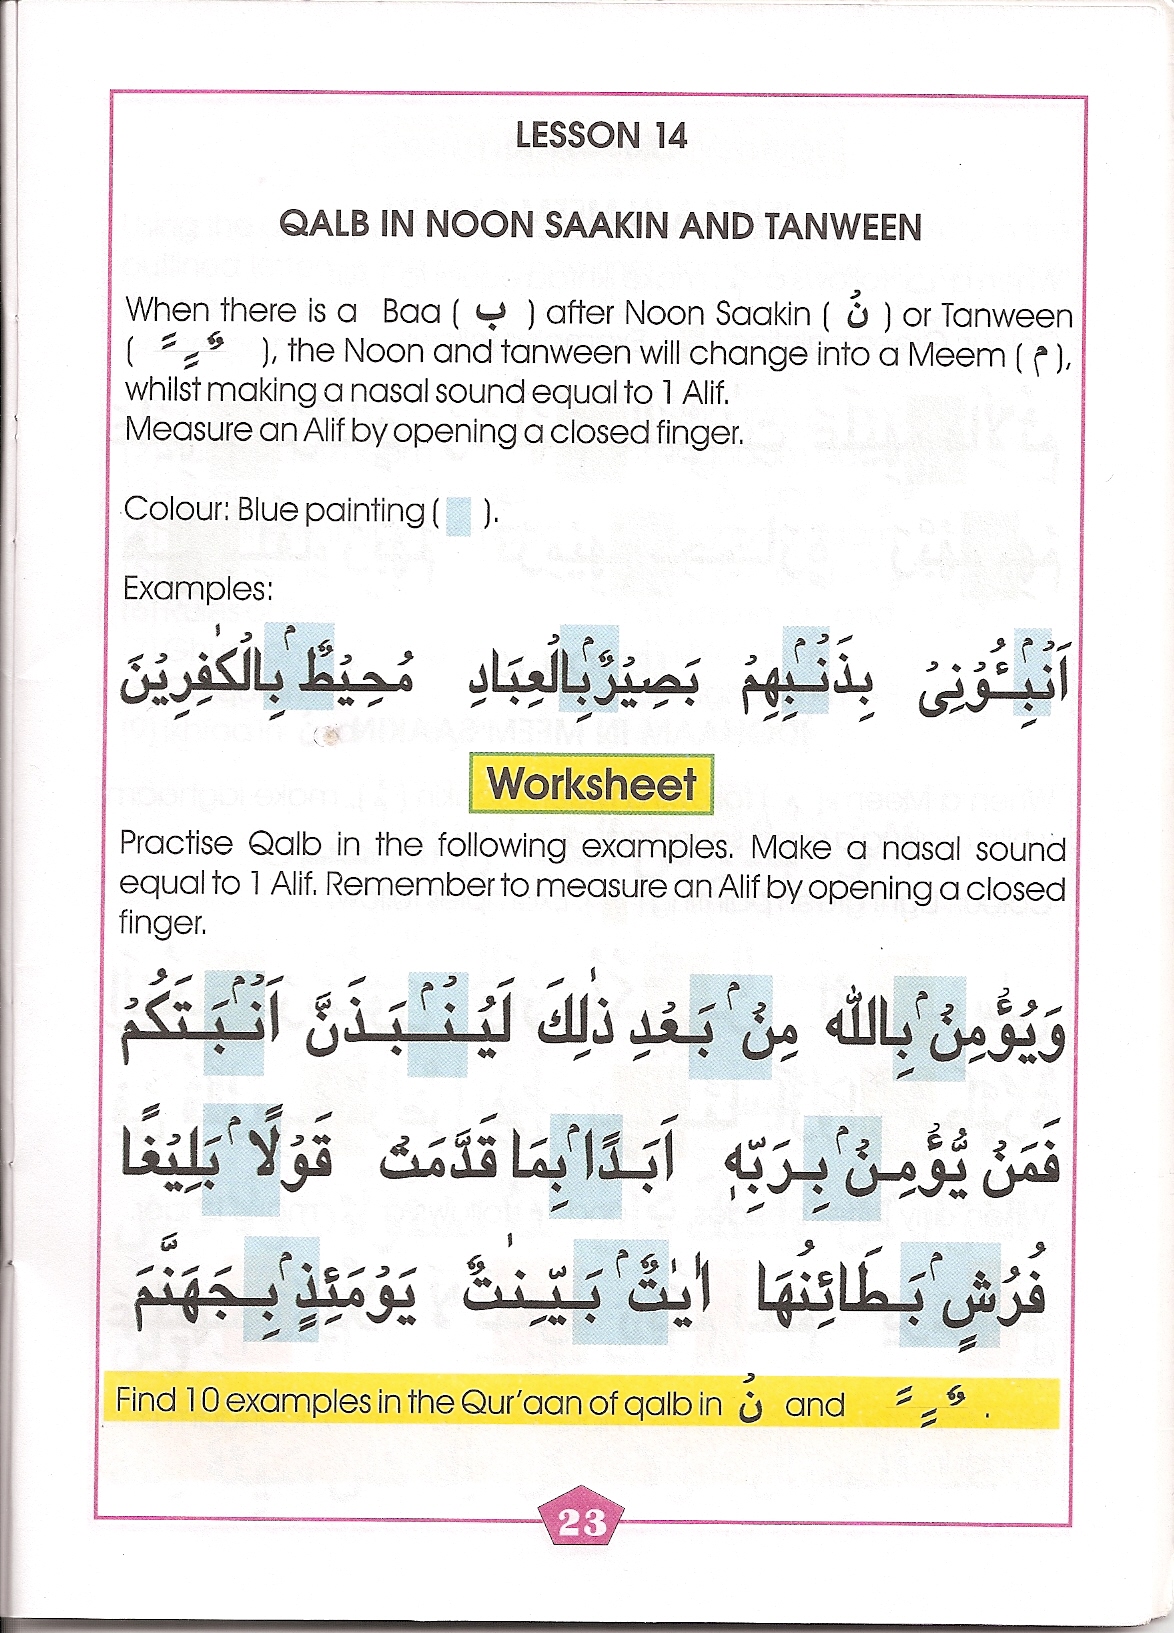 LESSON 14
QALB IN NOON SAAKIN AND TANWEEN
When there is a Baa ( ب ) after Noon Saakin ( نْ ) or Tanween
( ـً ـٍ ـٌ ), the Noon and tanween will change into a Meem ( م ),
whilst making a nasal sound equal to 1 Alif.
Measure an Alif by opening a closed finger.
Colour: Blue painting ( ).
Examples:
اَنْۢبِــُٔوْنِىْ بِذَنْۢبِهِمْ بَصِيْرٌۢ بِالْعِبَادِ مُحِيْطٌۢ بِالْكٰفِرِيْنَ
Worksheet
Practise Qalb in the following examples. Make a nasal sound
equal to 1 Alif. Remember to measure an Alif by opening a closed
finger.
وَيُؤْمِنْۢ بِاللّٰه مِنْۢ بَعْدِ ذٰلِكَ لَيُنْۢبَذَنَّ اَنْۢبَتَكُمْ
فَمَنْ يُّؤْمِنْۢ بِرَبِّهٖ اَبَدًاۢ بِمَا قَدَّمَتْ قَوْلًاۢ بَلِيْغًا
فُرُشٍۢ بَطَائِنُهَا اٰيٰتٌۢ بَيِّنٰتٌ يَوْمَئِذٍۢ بِجَهَنَّمَ
Find 10 examples in the Qur'aan of qalb in نْ and ـً ـٍ ـٌ .
23